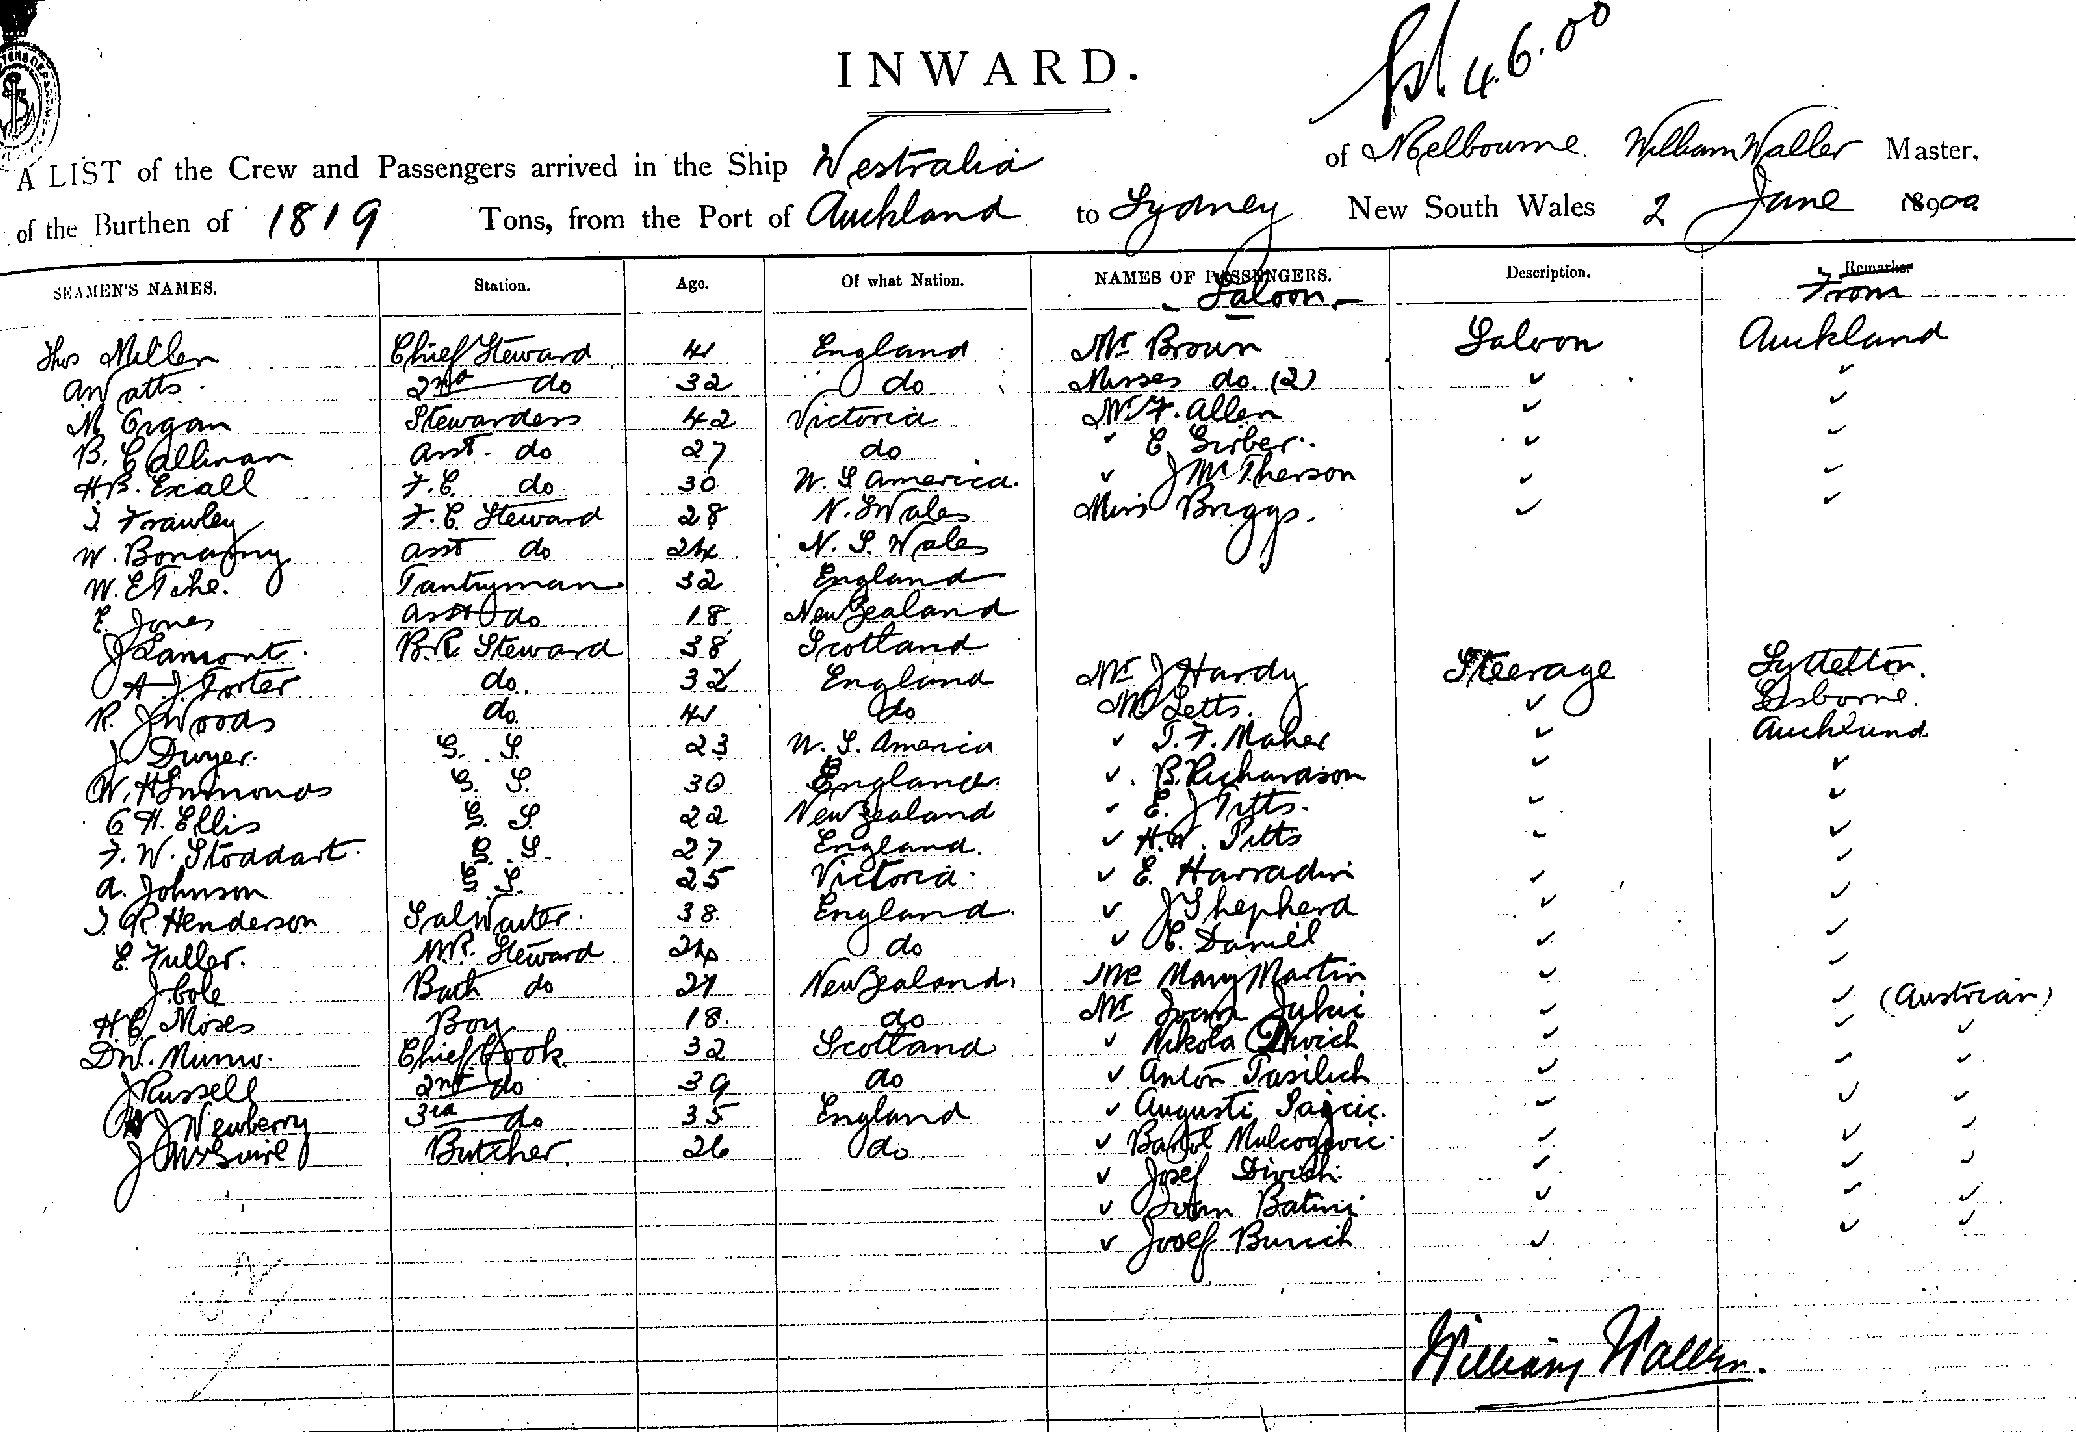 INWARD.
4.6.00
A LIST of the Crew and Passengers arrived in the Ship Westralia of Melbourne William Waller Master.
of the Burthen of 1819 Tons, from the Port of Auckland to Sydney New South Wales 2 June 1900
SEAMEN'S NAMES. Station. Age. Of what Nation. NAMES OF PASSENGERS. Description. Remarks
Saloon. From
Thos Miller Chief Steward 41 England Mr Brown Saloon Auckland
A Watts 2nd do 32 do Misses do. (2) ✓ ✓
M Organ Stewardess 42 Victoria Mr F. Allen ✓ ✓
B. Callinan asst. do 27 do " E. Girber. ✓ ✓
H.B. Exall F.C. do 30 U.S America. ✓ J McPherson ✓ ✓
J Frawley F.C. Steward 28 N.S Wales Miss Briggs. ✓ ✓
W. asst do 24 N.S. Wales
W. E Pantryman 32 England
E. Jones asst do 18 New Zealand
J Lamont. B.R. Steward 38 Scotland
A. J. Porter do. 32 England Mr J Hardy Steerage Lyttelton.
R. J Woods do. 41 do Mr Letts. ✓ Gisborne.
J Dwyer. G. S. 23 U.S. America ✓ T. F. Maher ✓ Auckland
W. H Simonds G. S. 30 England. ✓ B. Richardson ✓ ✓
C H. Ellis G. S. 22 New Zealand ✓ E. J Pitts. ✓ ✓
F. W. Stoddart. G. S. 27 England. ✓ H.W. Pitts ✓ ✓
A. Johnson G. S. 25 Victoria. ✓ E. Harradin ✓ ✓
J. R Henderson Sal Waiter. 38. England. ✓ J Shepherd ✓ ✓
E. Fuller. M.R. Steward 24 do ✓ C. Daniel ✓ ✓
J. Cole Bath do 21 New Zealand. Mrs Mary Martin ✓ ✓
H.C. Moses Boy 18. do Mr Ivan Jukic ✓ ✓ (Austrian)
D.W. Munro. Chief Cook 32 Scotland ✓ Nikola Divich ✓ ✓ ✓
J Russell 2nd do 39 do ✓ Anton Tasilich ✓ ✓ ✓
J Newberry 3rd do 35 England ✓ Augusti ✓ ✓ ✓
J McGuire Butcher. 26 do ✓ Bartol ✓ ✓ ✓
✓ Josef Divich. ✓ ✓ ✓
✓ Ivan Batini ✓ ✓ ✓
✓ Josef Burich ✓ ✓ ✓
William Waller.